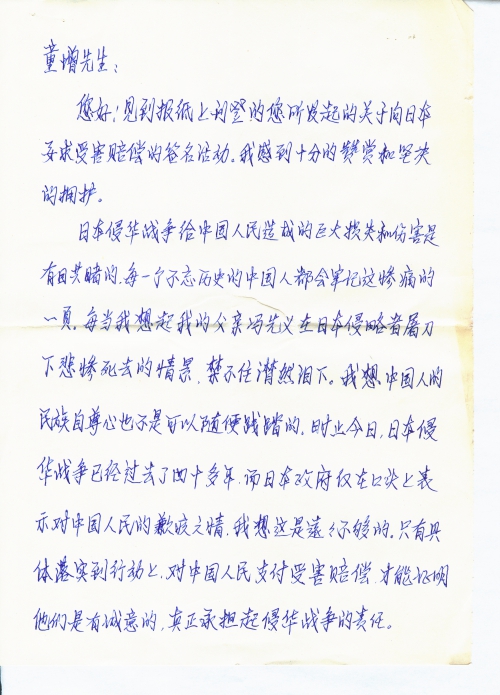 童增先生：
您好！见到报纸上刊登的您所发起的关于向日本
要求受害赔偿的签名活动。我感到十分的赞赏和坚决
的拥护。
日本侵华战争给中国人民造成的巨大损失和伤害是
有目共睹的，每一个不忘历史的中国人都会牢记这惨痛的
一页。每当我想起我的父亲冯先义在日本侵略者屠刀
下悲惨死去的情景，禁不住潸然泪下。我想中国人的
民族自尊心也不是可以随便践踏的。时止今日，日本侵
华战争已经过去了四十多年，而日本政府仅在口头上表
示对中国人民的歉疚之情，我想这是远々不够的。只有具
体落实到行动上，对中国人民支付受害赔偿，才能证明
他们是有诚意的，真正承担起侵华战争的责任。